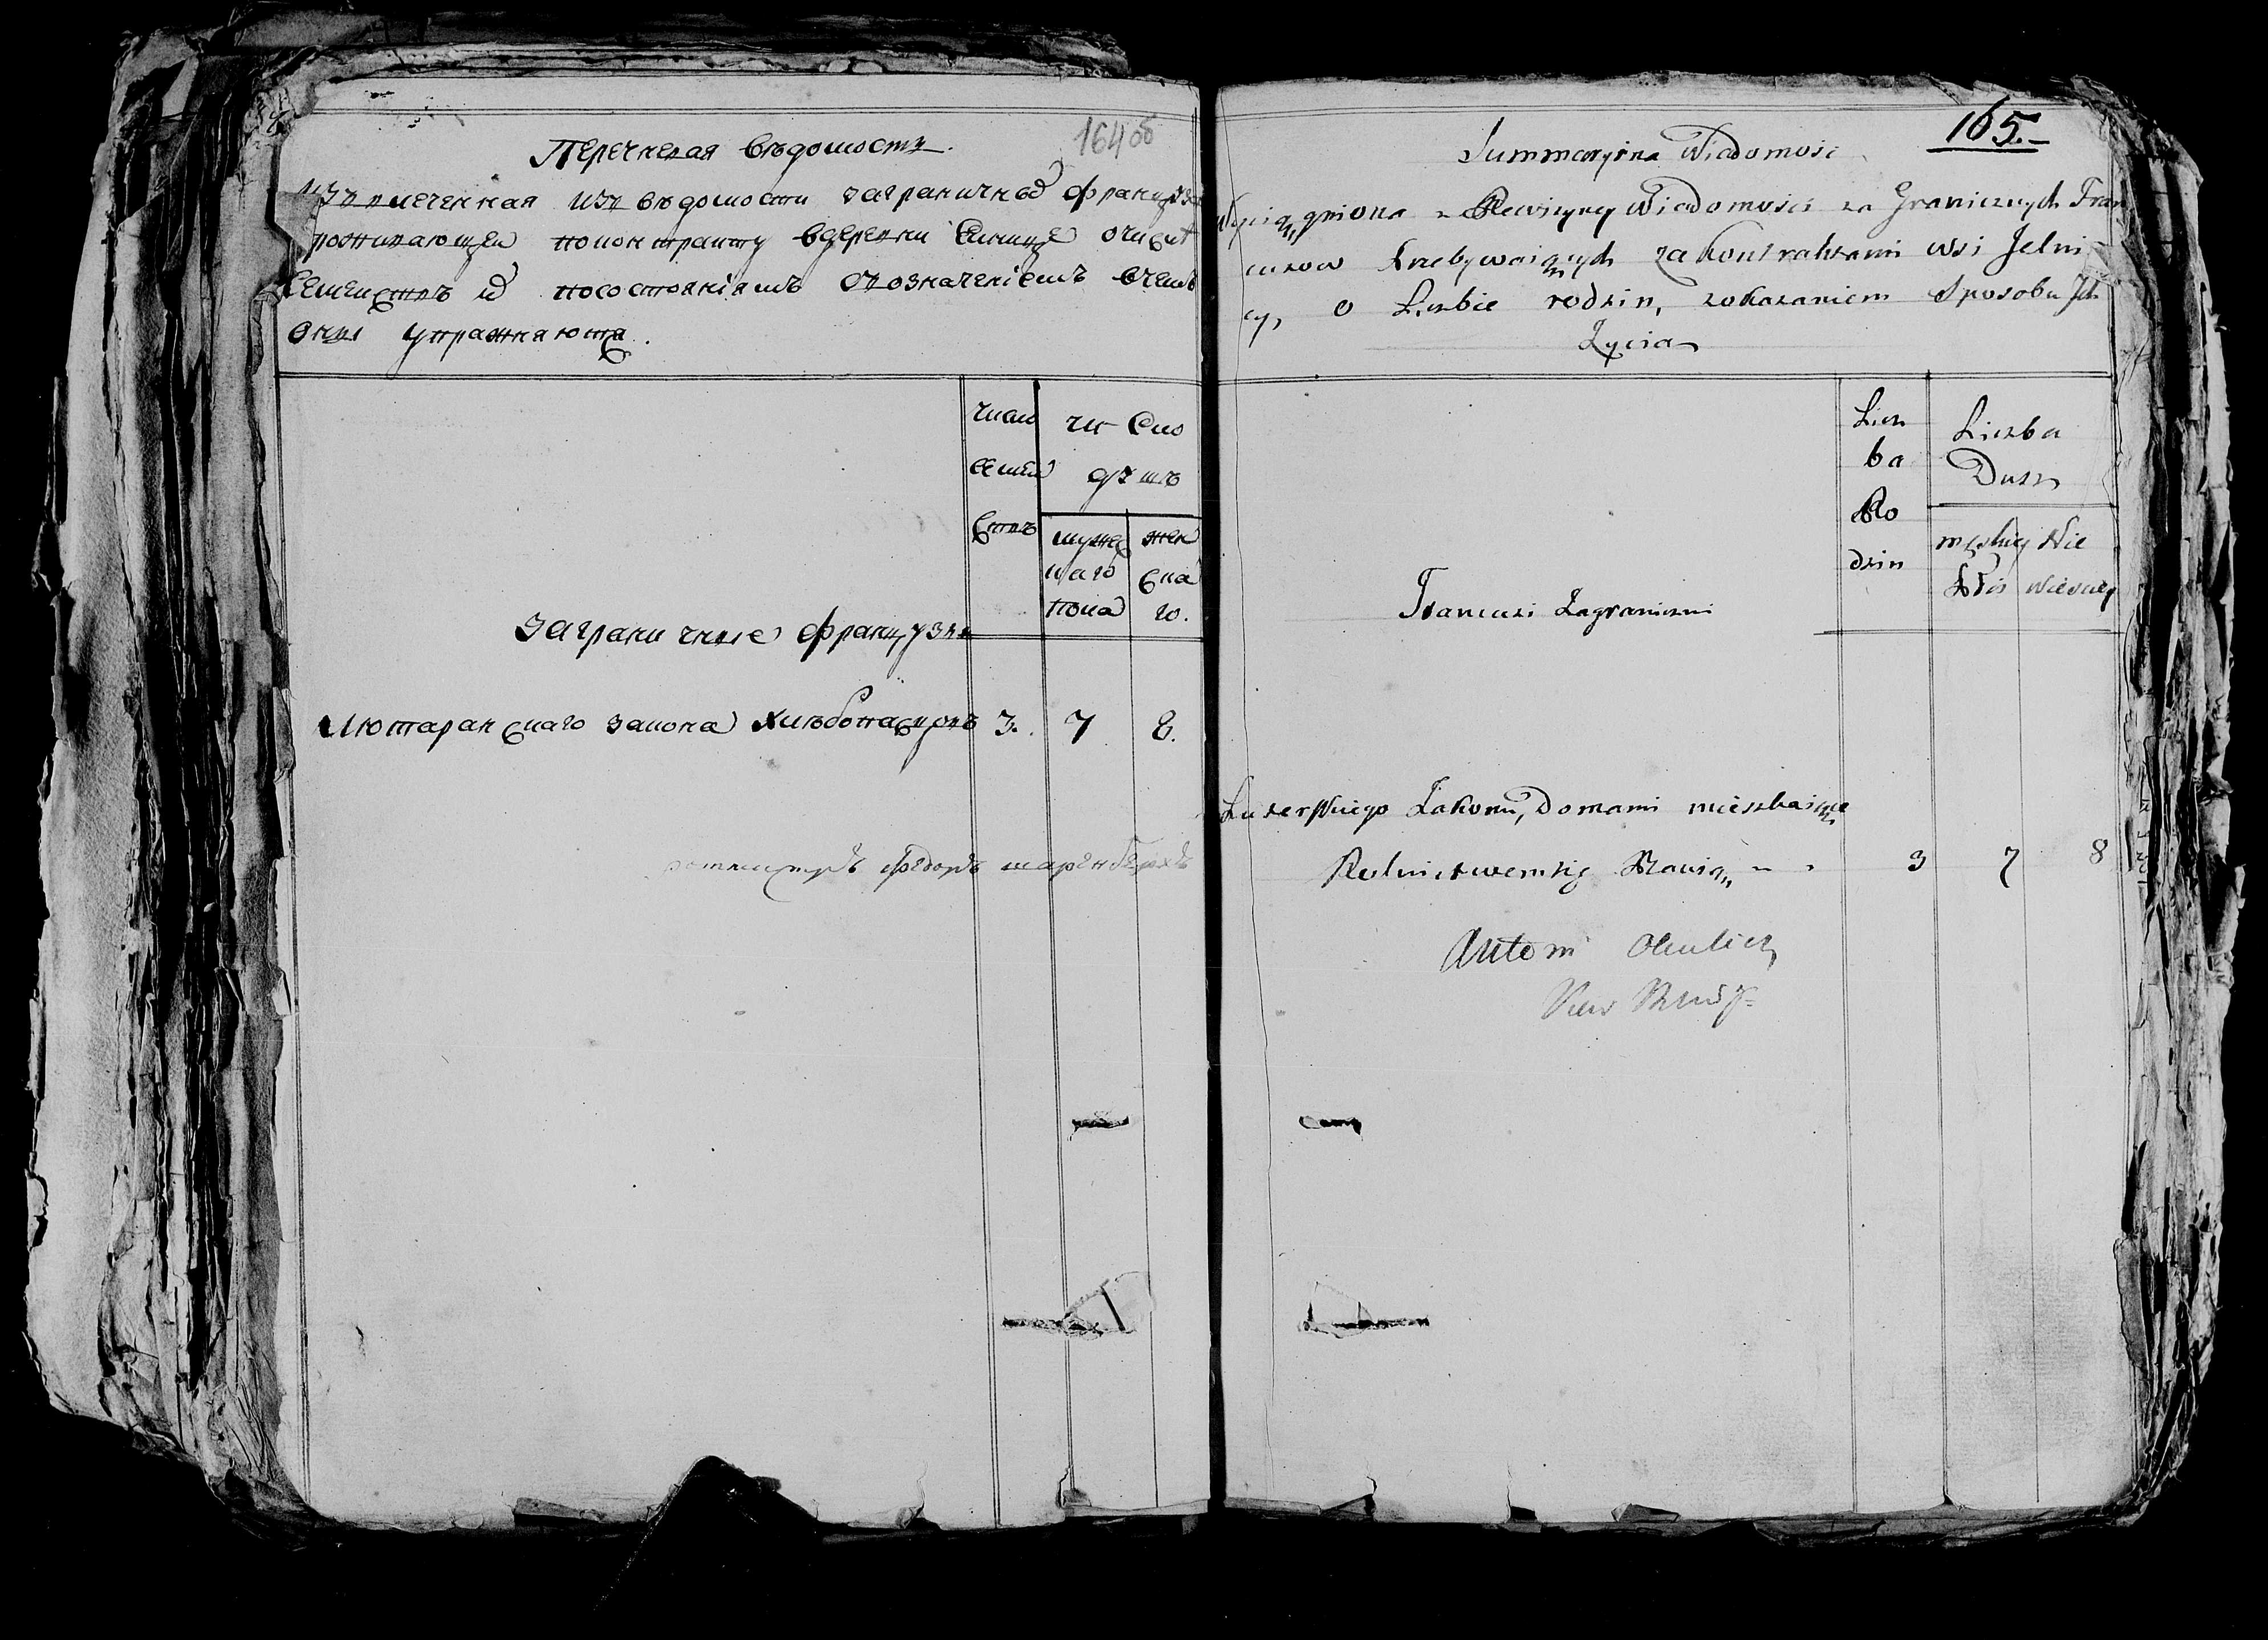 164 об
Перечневая вѣдомость.
Извлеченная изъ вѣдомости заграничныхъ француз
проживающей по контракту в деревни Елницѣ очислѣ
семействъ и по состоянiямъ съ означенiемъ вчемъ
оныя упражняются.
число семействъ
число душъ
мужескаго пола
женскаго.
Заграничные французы
Лютаранскаго закона хлѣбопашцовъ 3. 7 8.
ротмистръ федоръ
165.
Summaryina Wiadomosc
Wyciągniona z Rewizyiney Wiadomosci za Granicznych Fran
cuzow Przebywaiących za Kontraktami wsi Jelni
cy, o Liczbie rodzin, z okazaniem Sposobu Jch
Zycia
Liczba Rodzin
Liczba Dusz
męskiey Płci
Niewieściey
Francuzi Zagraniczni
Luterskiego Zakonu, Domami mieszkaiące
Rolnictwem się Bawią 3 7 8
Antoni